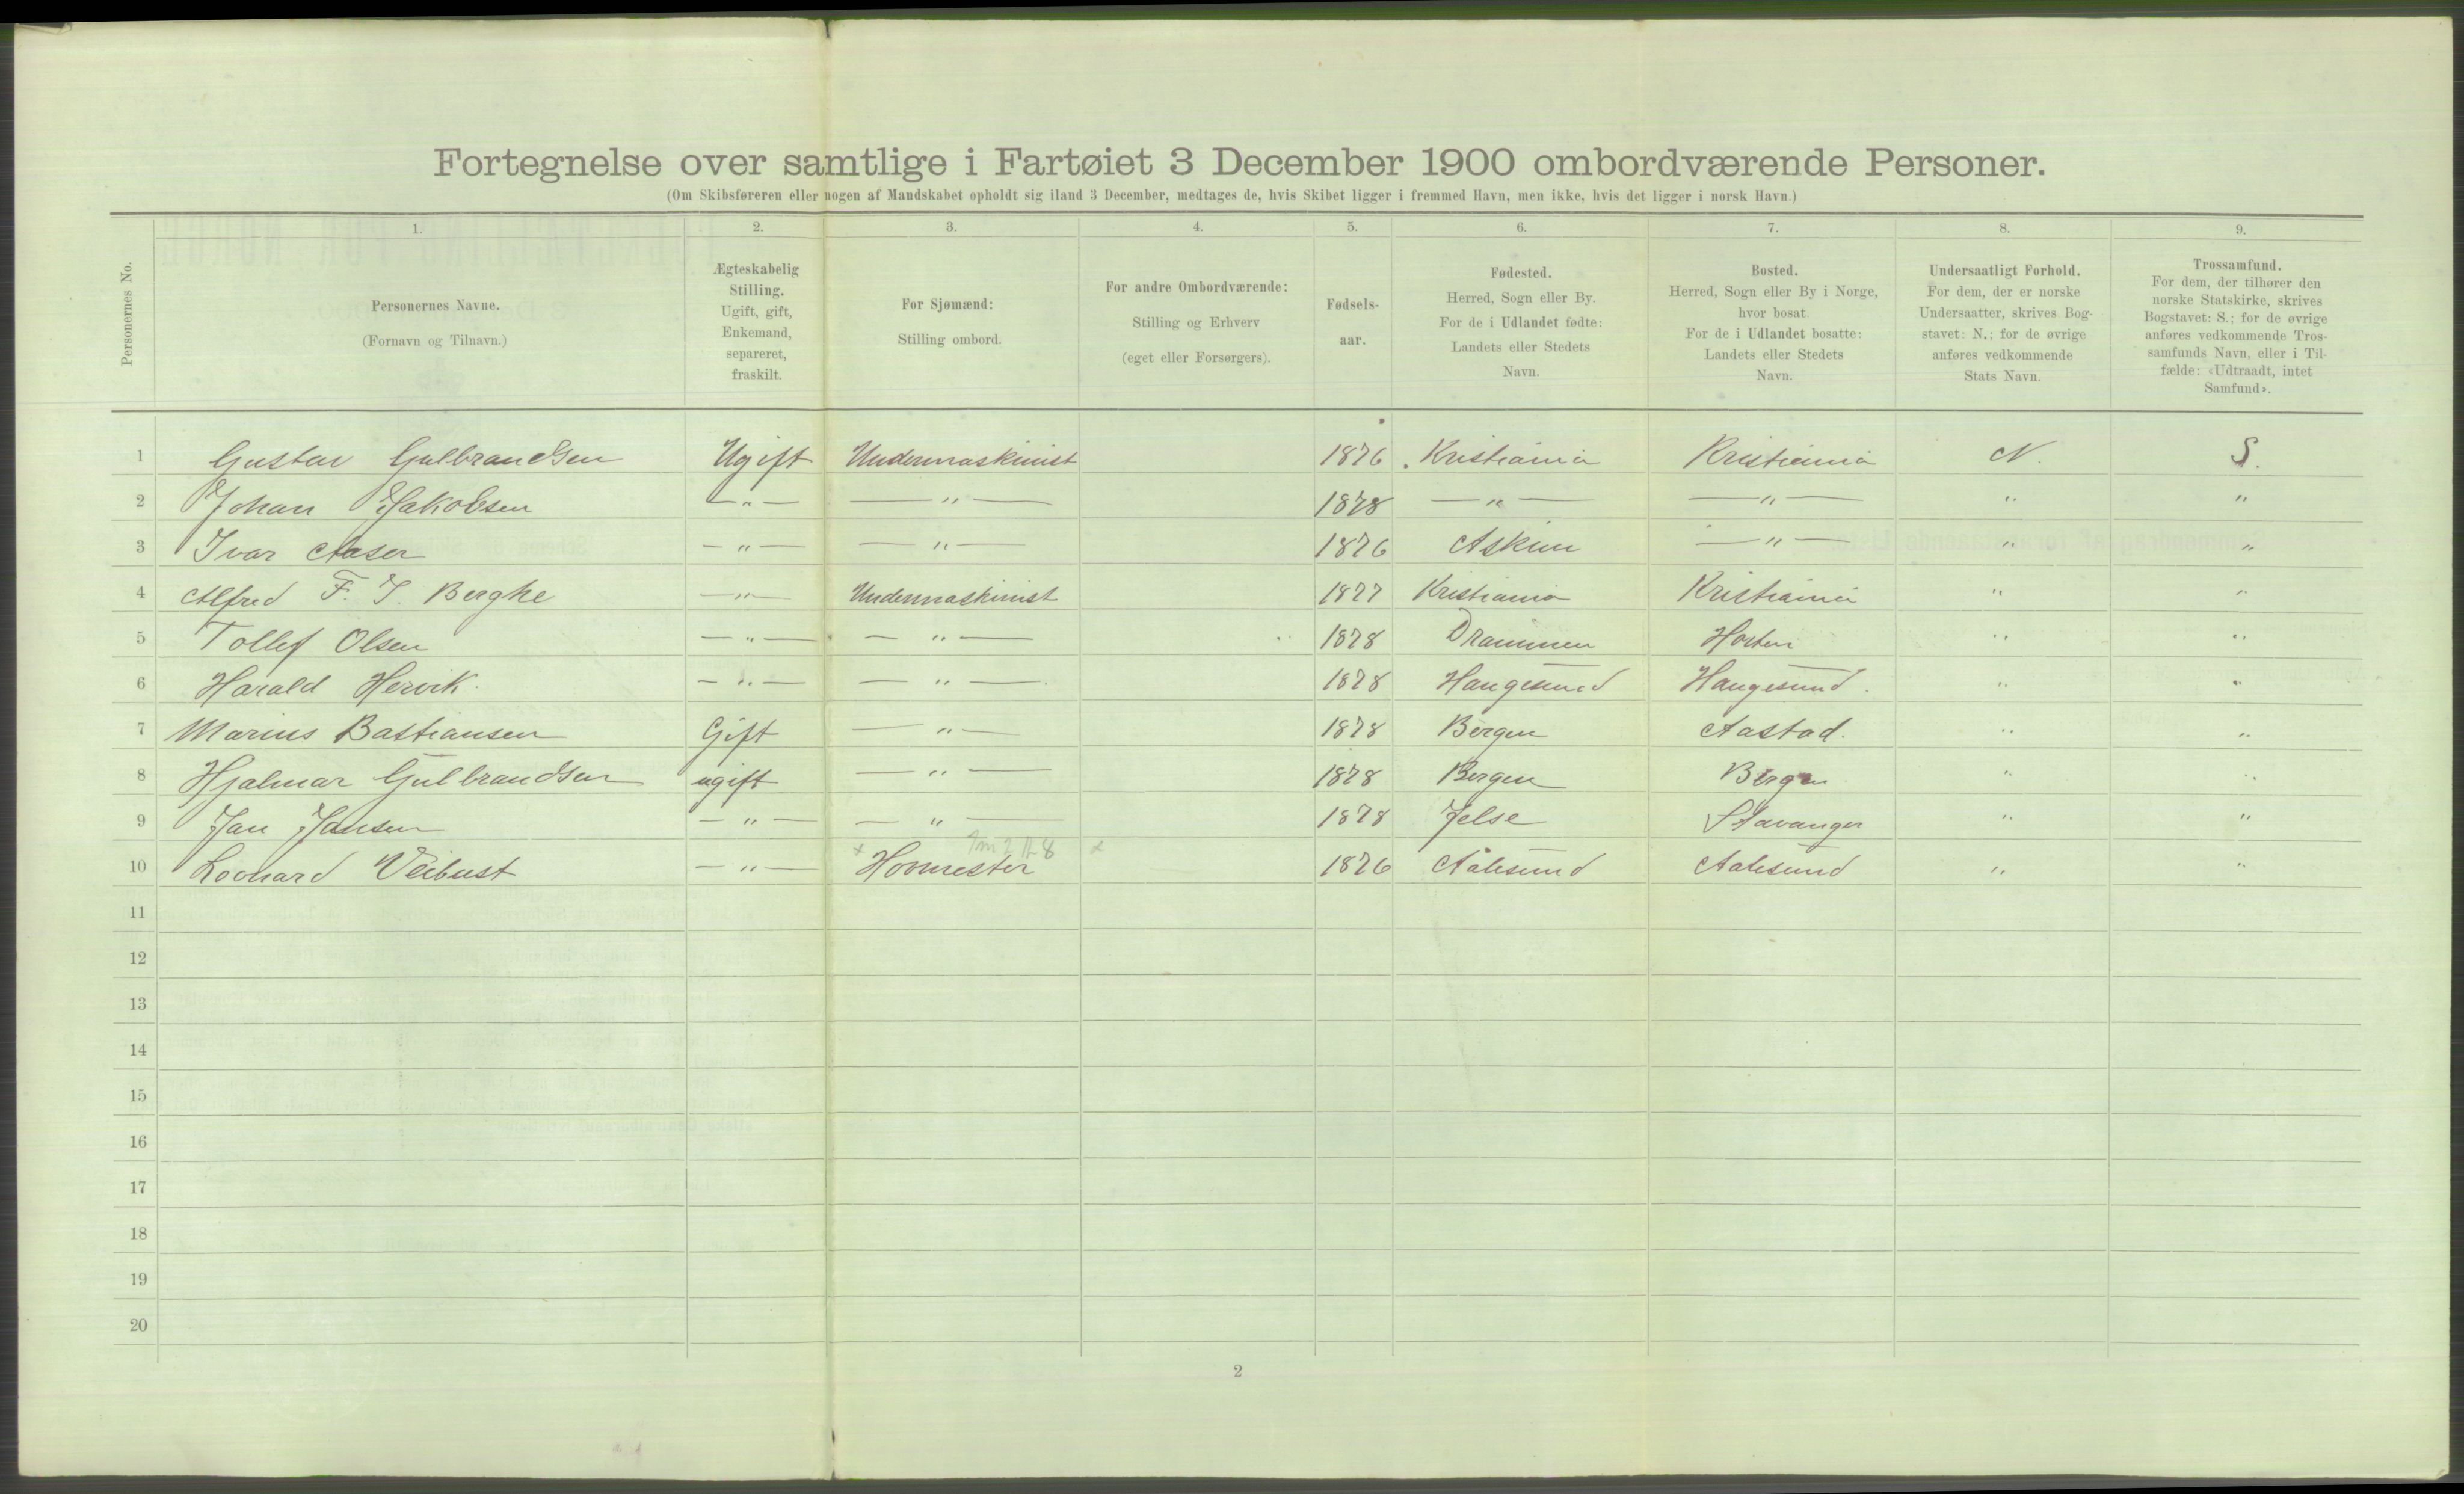 Fortegnelse over samtlige i Fartøiet 3 December 1900 ombordværende Personer.
(Om Skibsføreren eller nogen af Mandskabet opholdt sig iland 3 December, medtages de, hvis Skibet ligger i fremmed Havn, men ikke, hvis det ligger i norsk Havn.)
Personernes No.
1. 2. 3. 4. 5. 6. 7. 8. 9.
Personernes Navne.
(Fornavn og Tilnavn.)
Ægteskabelig
Stilling.
Ugift, gift,
Enkemand,
separeret,
fraskilt.
For Sjømænd:
Stilling ombord.
For andre Ombordværende:
Stilling og Erhverv
(eget eller Forsørgers).
Fødsels-
aar.
Fødested.
Herred, Sogn eller By.
For de i Udlandet fødte:
Landets eller Stedets
Navn.
Bosted.
Herred, Sogn eller By i Norge,
hvor bosat
For de i Udlandet bosatte:
Landets eller Stedets
Navn.
Undersaatligt Forhold.
For dem, der er norske
Undersaatter, skrives Bog-
stavet: N.; for de øvrige
anføres vedkommende
Stats Navn.
Trossamfund.
For dem, der tilhører den
norske Statskirke, skrives
Bogstavet: S.; for de øvrige
anføres vedkommende Tros-
samfunds Navn, eller i Til-
fælde: «Udtraadt, intet
Samfund».
1 Gustav Gulbrandsen Ugift Undermaskinist 1876 Kristiania Kristiania N. S.
2 Johan Jakobsen — " — — " — 1878 — " — — " — " "
3 Ivar Aaser — " — — " — 1876 Askim — " — " "
4 Alfred F. J. Berghe — " — Undermaskinist 1877 Kristiania Kristiania " "
5 Tollef Olsen — " — — " — 1878 Drammen Horten " "
6 Harald Hervik. — " — — " — 1878 Haugesund Haugesund. " "
7 Marius Bastiansen Gift — " — 1878 Bergen Aastad. " "
8 Hjalmar Gulbrandsen ugift — " — 1878 Bergen Bergen " "
9 Jan Jansen — " — — " — 1878 Jelse Stavanger " "
10 Leonard Veibust — " — Hovmester 1876 Aalesund Aalesund " "
11
12
13
14
15
16
17
18
19
20
2